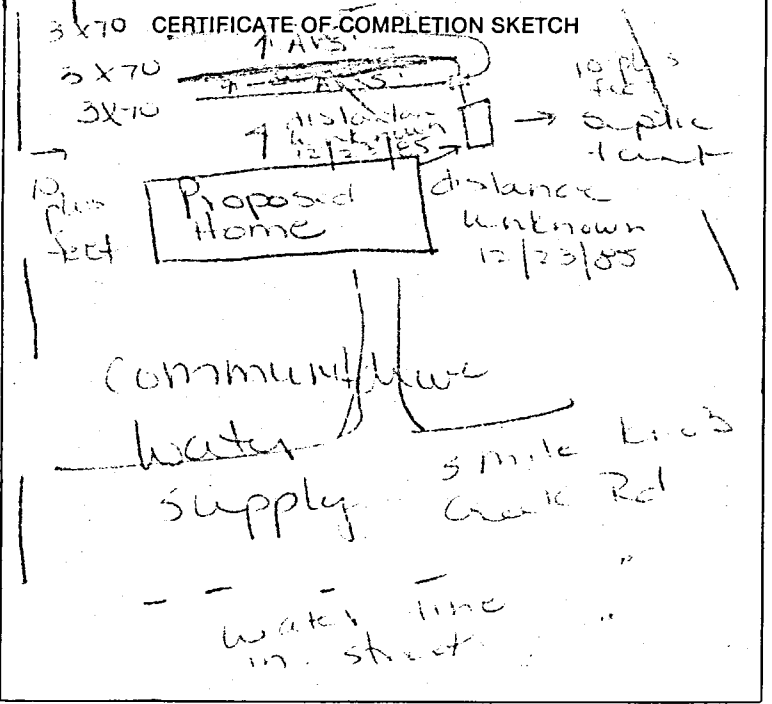 CERTIFICATE OF COMPLETION SKETCH
3 x 70
3 x 70
3x70
10 plus
feet
septic
distance
unknown
12/23/85
10
plus
feet
Proposed
Home
distance
unknown
12/23/85
Community
water
supply
Creek Rd
"
water line
"
in street